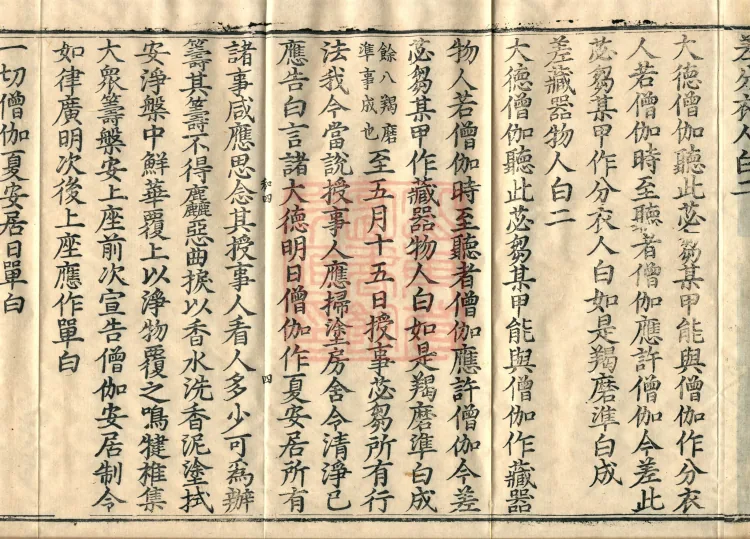 差分衣人白二
大德僧伽聽此苾芻某甲能與僧伽作分衣
人若僧伽時至聽者僧伽應許僧伽今差此
苾芻某甲作分衣人白如是羯磨準白成
差藏器物人白二
大德僧伽聽此苾芻某甲能與僧伽作藏器
物人若僧伽時至聽者僧伽應許僧伽今差
苾芻某甲作藏器物人白如是羯磨準白成
餘八羯磨
準事成也
至五月十五日授事苾芻所有行
法我今當說授事人應掃塗房舍令清淨已
應告白言諸大德明日僧伽作夏安居所有
和四
四
諸事咸應思念其授事人看人多少可為辦
籌其籌不得麤惡曲捩以香水洗香泥塗拭
安淨盤中鮮華覆上以淨物覆之鳴犍椎集
大眾籌盤安上座前次宣告僧伽安居制令
如律廣明次後上座應作單白
一切僧伽夏安居日單白